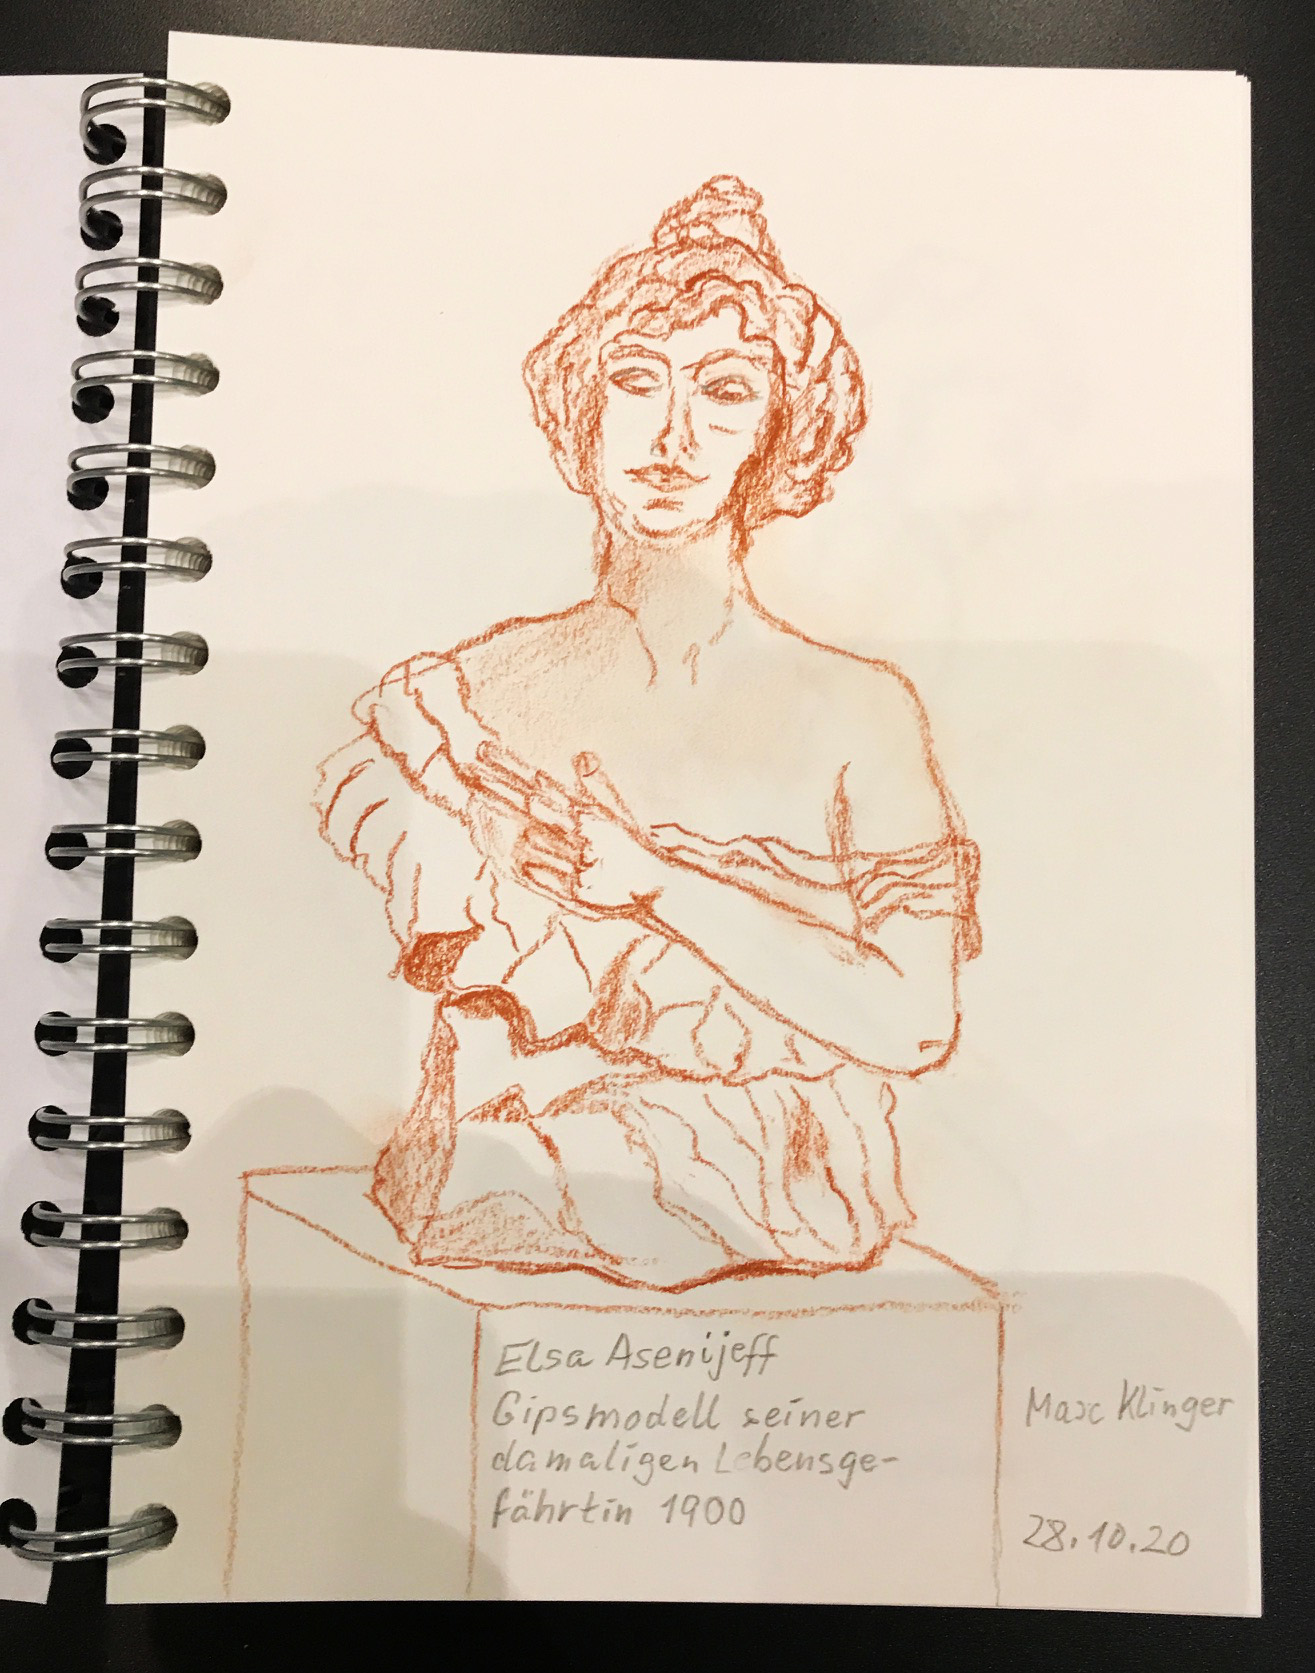 Elsa Asenijeff
Gipsmodell seiner
damaligen Lebensge-
fährtin 1900
Max Klinger
28.10.20